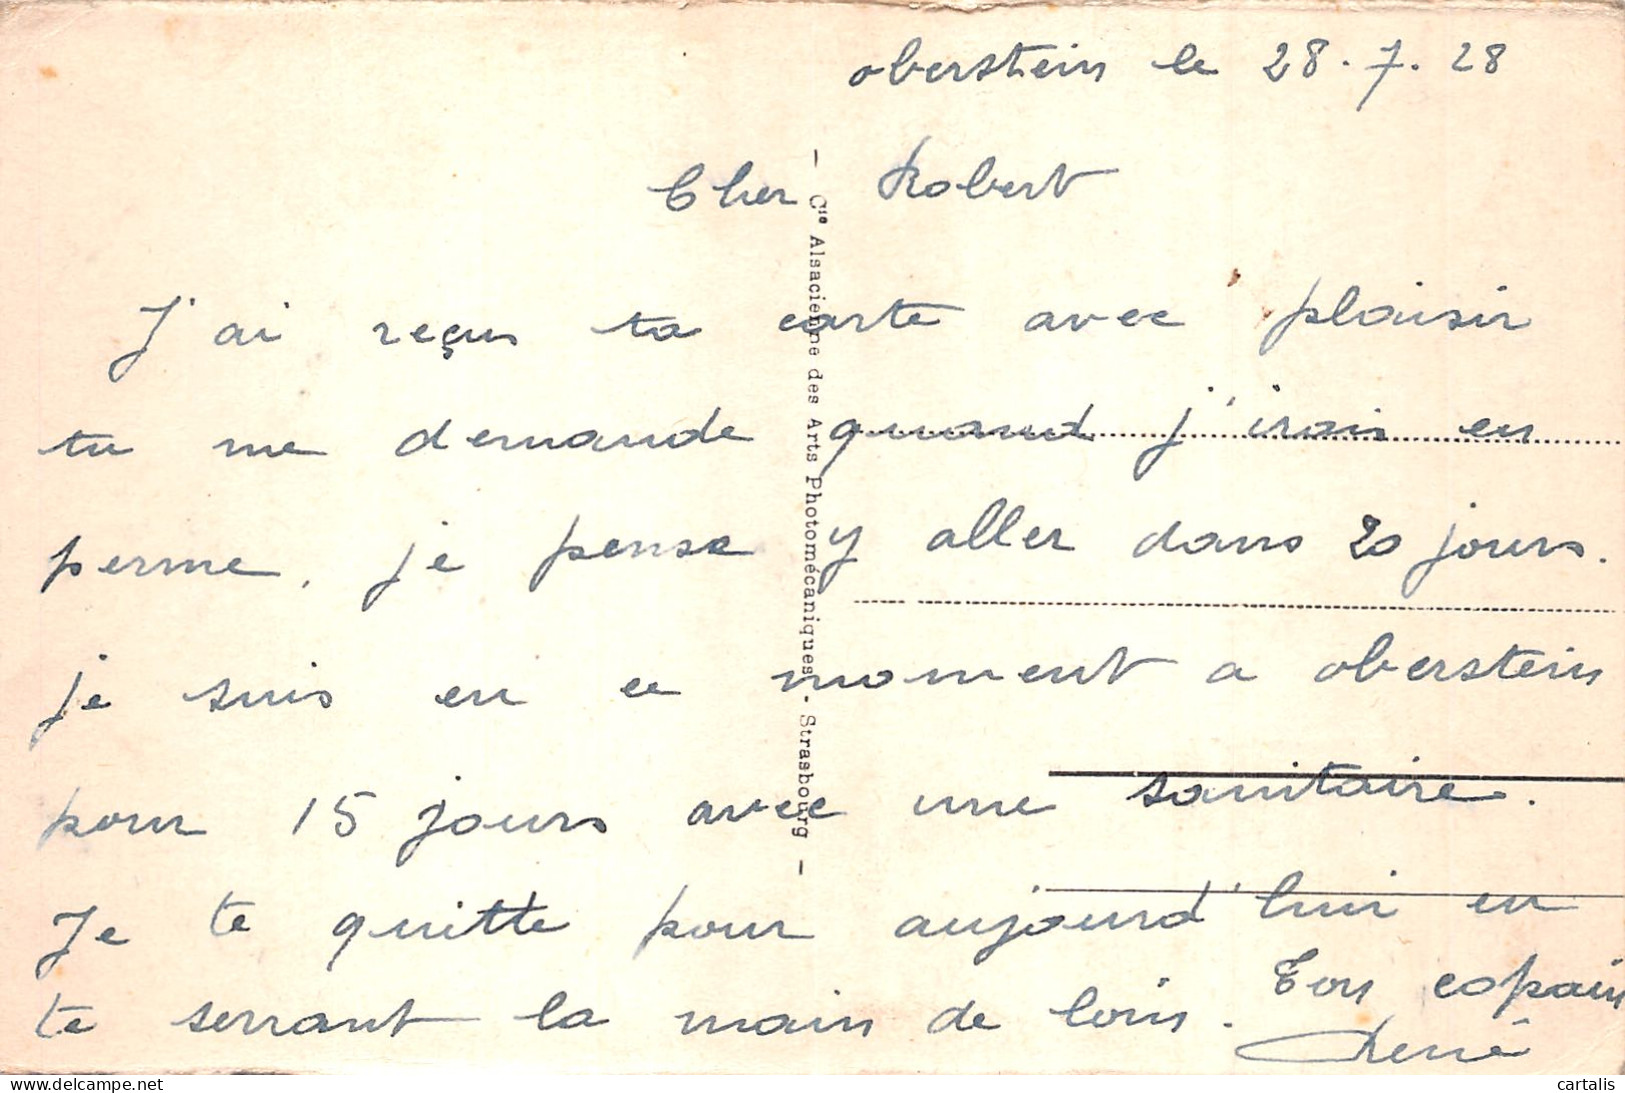 oberstein le 28.7.28
Cher Robert
J'ai reçus ta carte avec plaisir
tu me demande quand j'irais en
perme, je pense y aller dans 20 jours.
je suis en ce moment a oberstein
pour 15 jours avec une sanitaire.
Je te quitte pour aujourd'hui en
te serrant la main de loin. Ton copain
René
- Cie Alsacienne des Arts Photomécaniques - Strasbourg -
© www.delcampe.net
cartalis